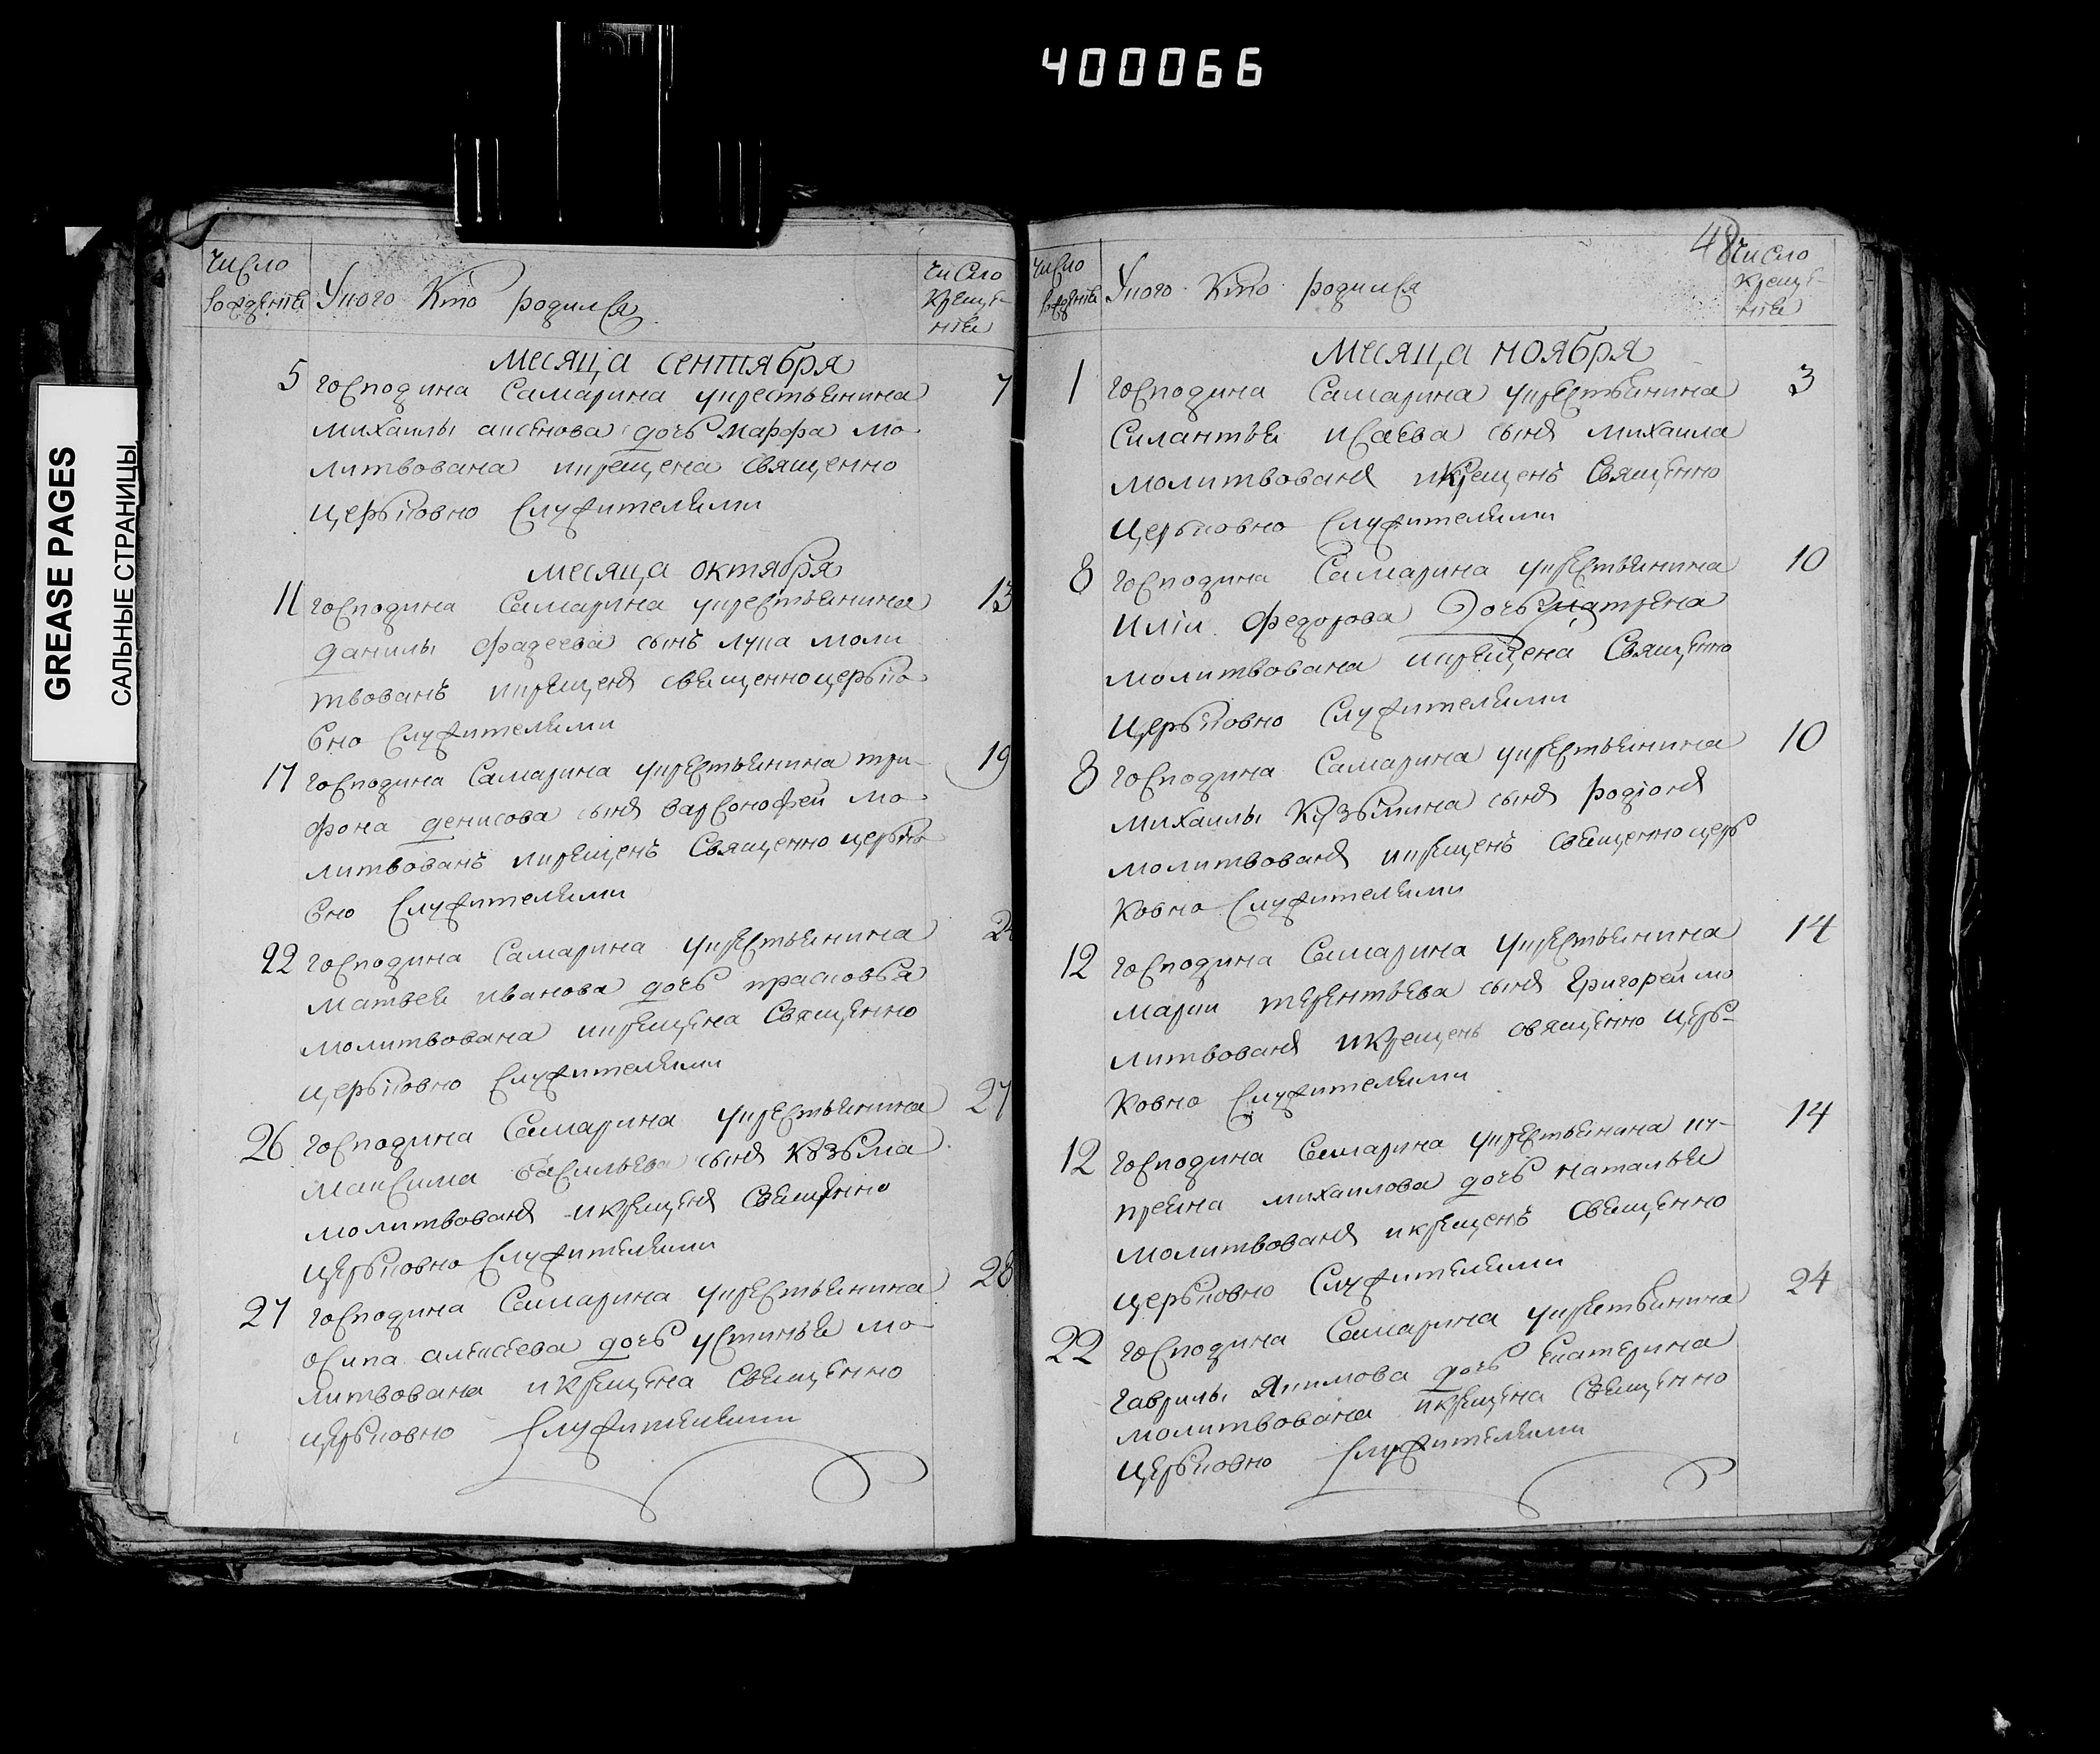 400066
GREASE PAGES
САЛЬНЫЕ СТРАНИЦЫ
число рожденiя
У кого кто родился
число крещенiя
месяца сентября
5 господина Самарина укрестьянина 7
михаилы аксенова дочь марфа мо
литвована икрещена священно
церьковно служителями
месяца октября
11 господина Самарина укрестьянина 13
данилы фадеева сынъ лупа моли
твованъ икрещенъ священноцерько
вно служителями
17 господина Самарина укрестьянина три- 19
фона денисова сынъ варсонофеи мо
литвованъ икрещенъ священно церько
вно служителями
22 господина Самарина укрестьянина
матвея иванова дочь прасковья
молитвована икрещена священно
церьковно служителями
26 господина Самарина укрестьянина 27
максима васильева сынъ козьма
молитвованъ икрещенъ священно
церьковно служителями
27 господина Самарина укрестьянина 28
осипа алексеева дочь устинья мо
литвована икрещена священно
церьковно служителями
48
число рожденiя
У кого кто родился
число крещенiя
месяца ноября
1 господина Самарина укрестьянина 3
силантья исаева сынъ михаила
молитвованъ икрещенъ священно
церьковно служителями
8 господина Самарина укрестьянина 10
илiи федорова дочь матрена
молитвована икрещена священно
церьковно служителями
8 господина Самарина укрестьянина 10
михаилы кузьмина сынъ родiонъ
молитвованъ икрещенъ священно церь
ковно служителями
12 господина Самарина укрестьянина 14
терентьева сынъ григореи мо
литвованъ икрещенъ священно церь-
ковно служителями
12 господина Самарина укрестьянина ки- 14
преяна михаилова дочь наталья
молитвованъ икрещенъ священно
церьковно служителями
22 господина Самарина укрестьянина 24
гаврилы якимова дочь екатерина
молитвована икрещена священно
церьковно служителями